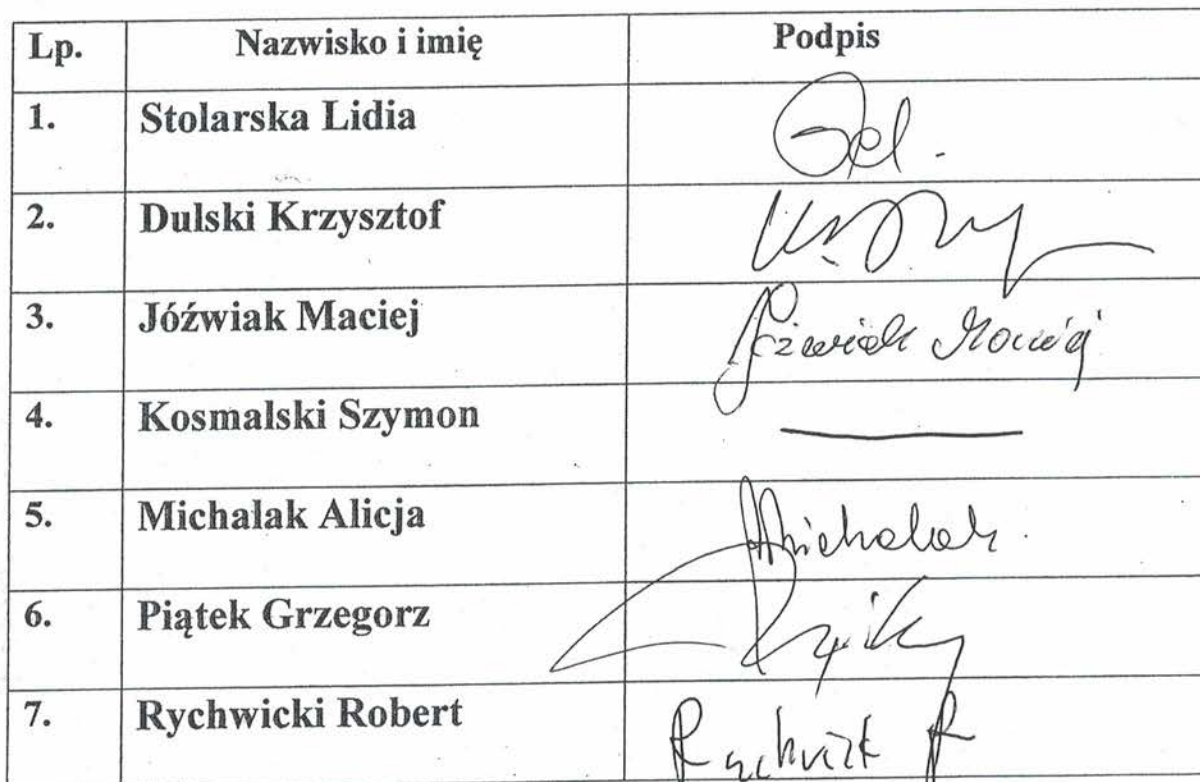 Lp. Nazwisko i imię Podpis
1. Stolarska Lidia
2. Dulski Krzysztof
3. Jóźwiak Maciej Jóźwiak Maciej
4. Kosmalski Szymon
5. Michalak Alicja AMichalak
6. Piątek Grzegorz
7. Rychwicki Robert